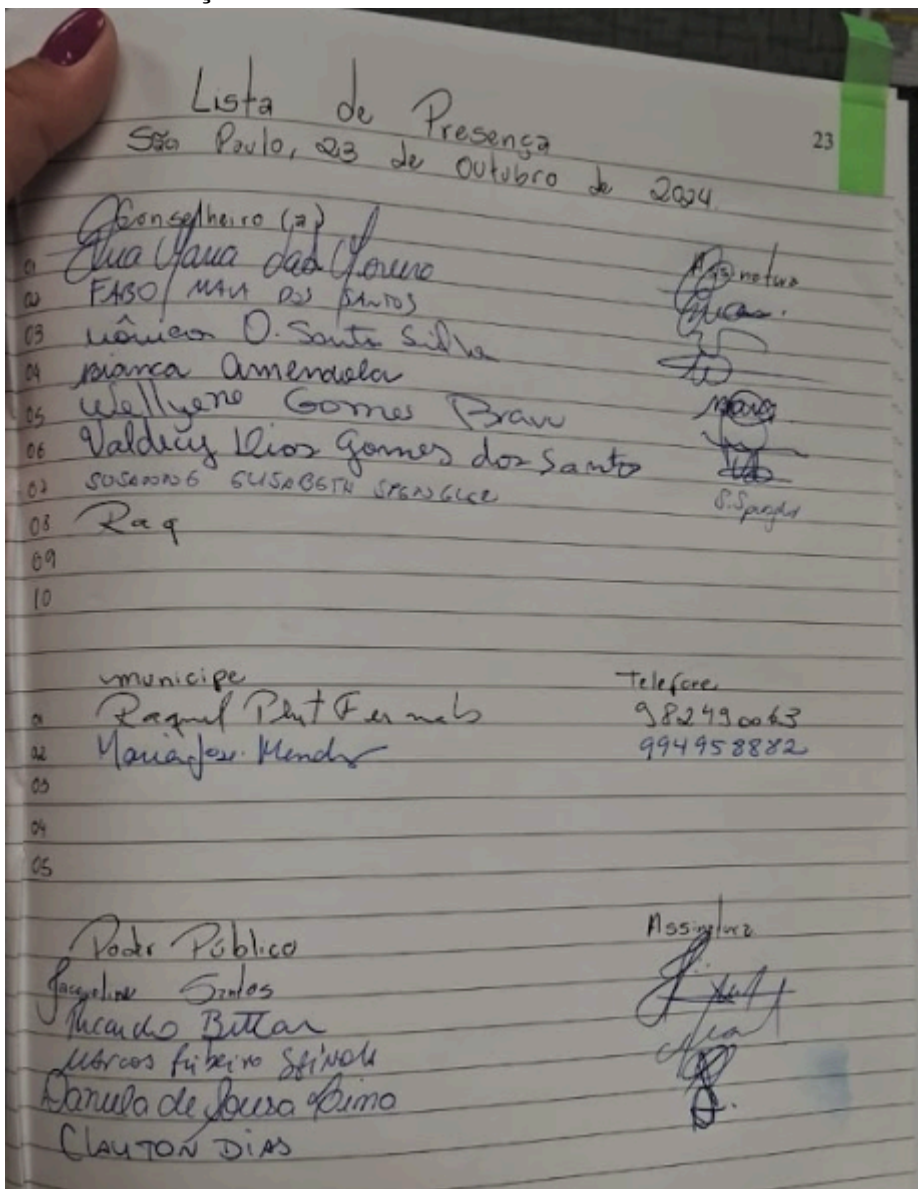 Lista de Presença
23
São Paulo, 23 de Outubro de 2024.
Conselheiro (a) Assinatura
01 Maria
02 FABO MAIA DOS SANTOS
03 Mônica O. Santos Silva
04 Bianca Amendola
05 Wellyene Gomes Bravo
06 Valdecy Dias Gomes dos Santos
07 ELISABETH SPENGLER S.Spengler
08 Raq
09
10
municipe Telefone
01 Raquel 982490063
02 Maria Jose Mendes 994958882
03
04
05
Poder Público Assinatura
Jacqueline Santos
Ricardo Bittar
Marcos Ribeiro
Daniela de Sousa Lima
CLAYTON DIAS